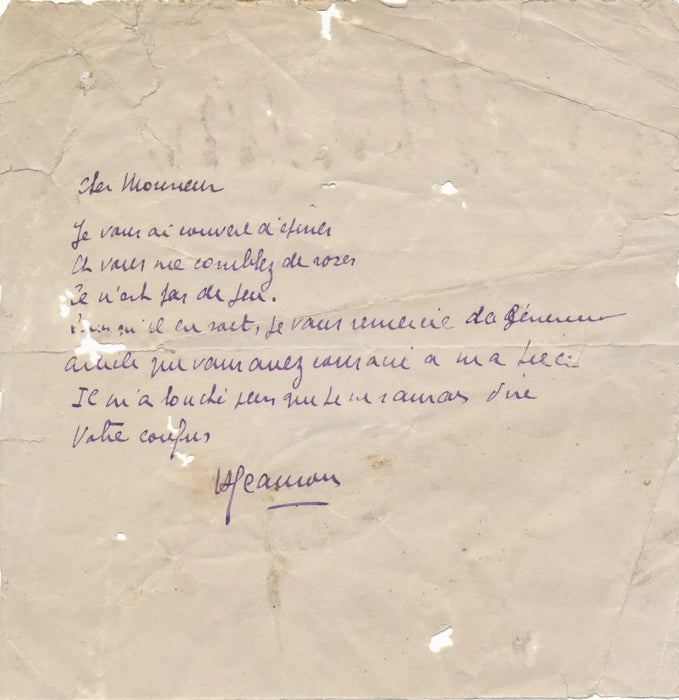 Cher Monsieur
Je vous ai couvert d'épines
Et vous me comblez de roses
Ce n'est pas de jeu.
qu'il en soit, je vous remercie du généreux
article que vous avez consacré à ma
Il m'a touché plus que je ne saurais dire
Votre confus